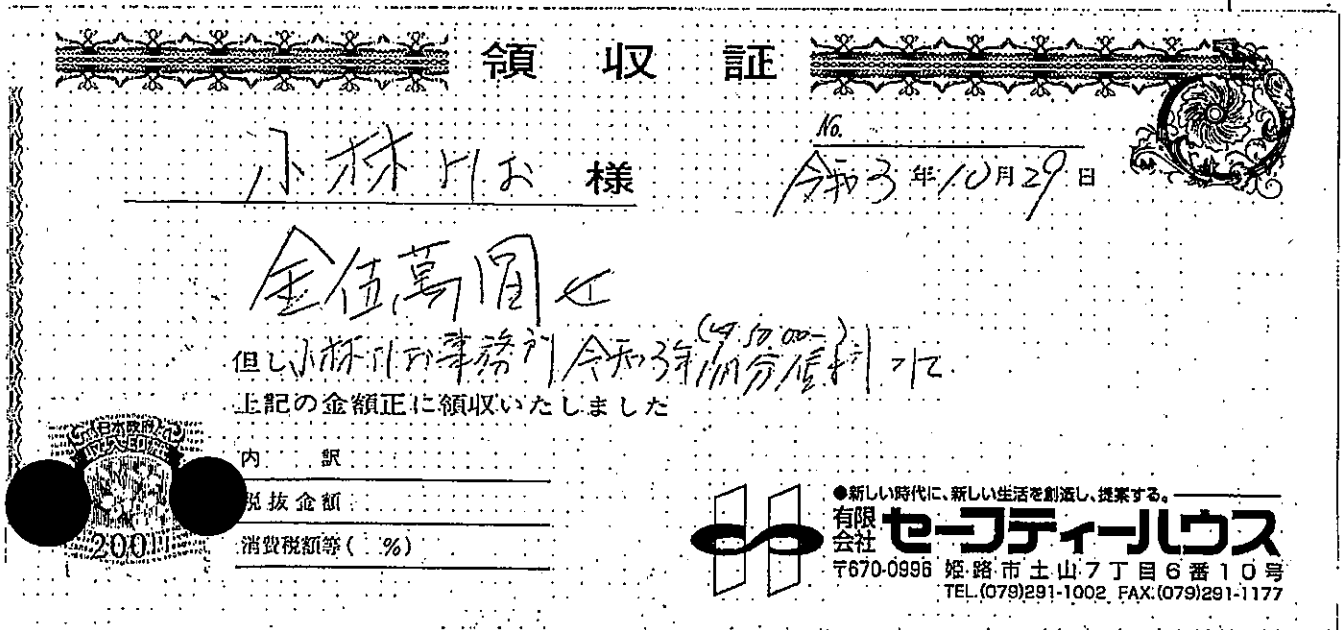 領収証
No.
小林 様
令和3年10月29日
金伍萬圓也
但し小林事務所 令和3年 月分家賃
上記の金額正に領収いたしました
日本政府
収入印紙
200
内訳
税抜金額
消費税額等( %)
●新しい時代に、新しい生活を創造し、提案する。
有限会社 セーフティーハウス
〒670-0996 姫路市土山7丁目6番10号
TEL.(079)291-1002 FAX.(079)291-1177